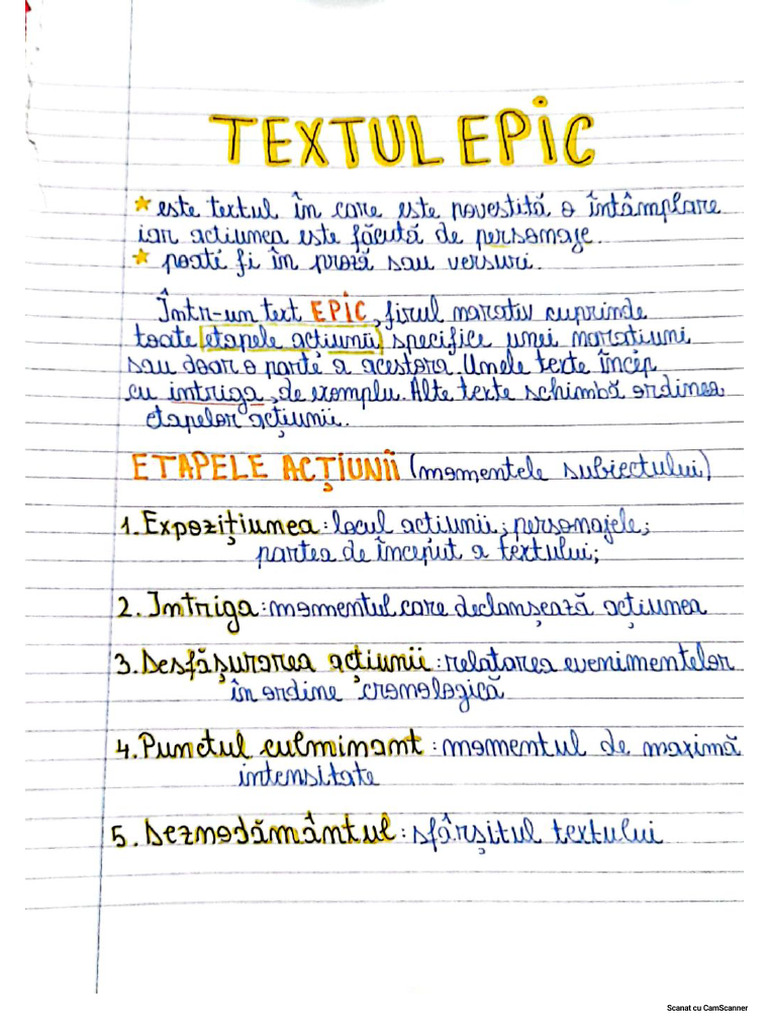 TEXTUL EPIC
★ este textul în care este povestită o întâmplare
iar actiunea este făcută de personaje.
★ poate fi în proză sau versuri.
Într-un text EPIC, firul narativ cuprinde
toate etapele acțiunii specifice unei naratiuni
sau doar o parte a acestora. Unele texte încep
cu intriga, de exemplu. Alte texte schimbă ordinea
etapelor acțiunii.
ETAPELE ACȚIUNII (momentele subiectului)
1. Expozițiumea: locul actiunii; personajele;
partea de început a textului;
2. Intriga: momentul care declanșează acțiunea
3. Desfășurarea acțiunii: relatarea evenimentelor
în ordine cronologică
4. Punctul culminant: momentul de maximă
intensitate
5. Deznodământul: sfârșitul textului
Scanat cu CamScanner